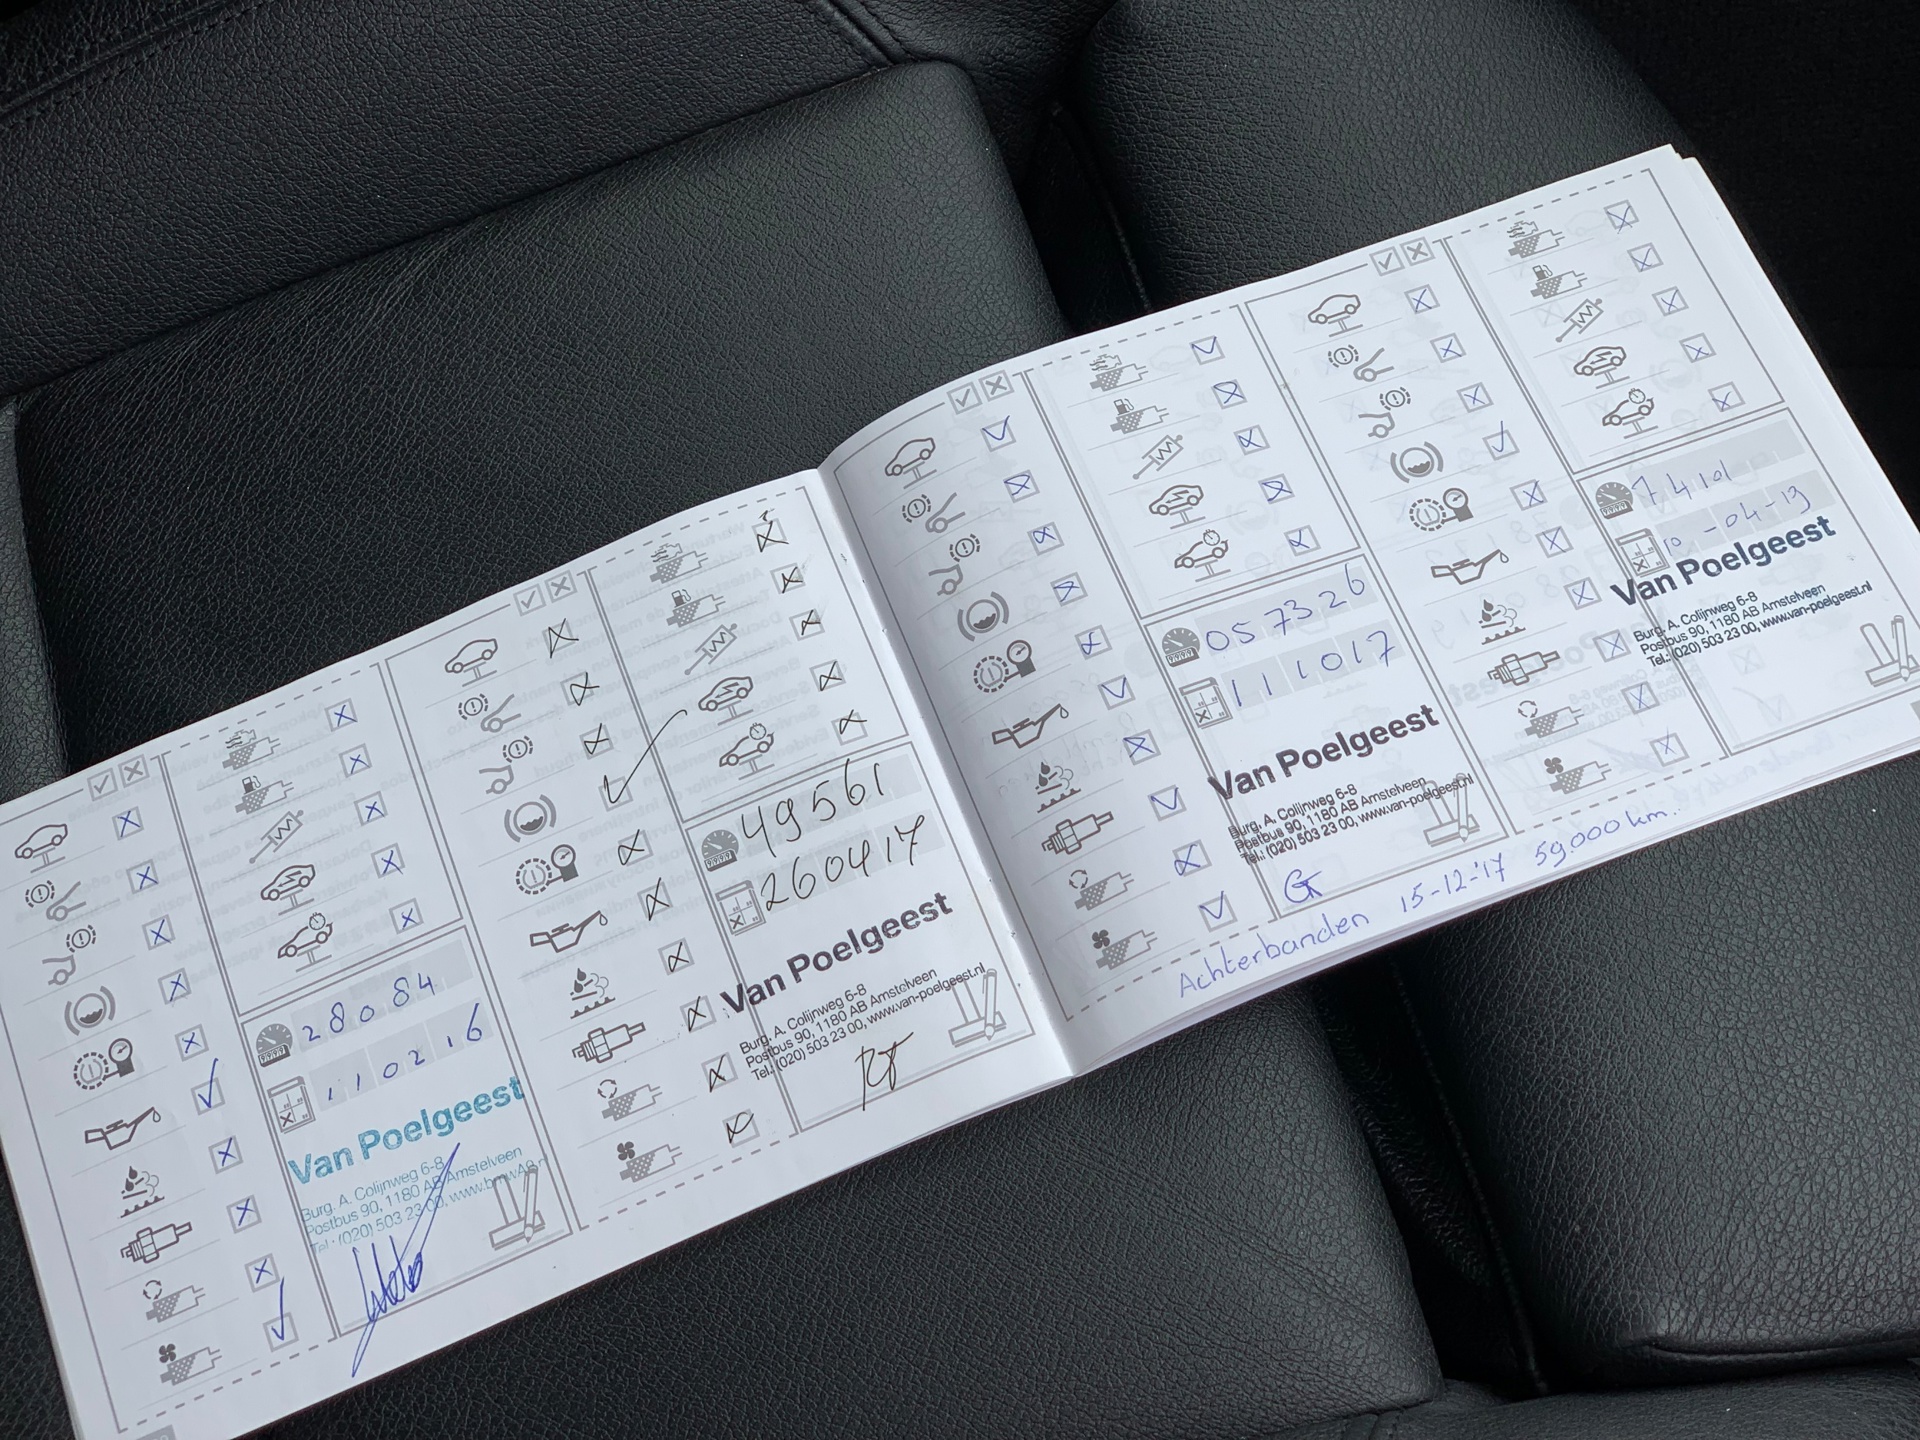 28084
110216
Van Poelgeest
Burg. A. Colijnweg 6-8
Postbus 90, 1180 AB Amstelveen
Tel.: (020) 503 23 00,
49561
260417
Van Poelgeest
Burg. A. Colijnweg 6-8
Postbus 90, 1180 AB Amstelveen
Tel.: (020) 503 23 00, www.van-poelgeest.nl
057326
111017
Van Poelgeest
Burg. A. Colijnweg 6-8
Postbus 90, 1180 AB Amstelveen
Tel.: (020) 503 23 00, www.van-poelgeest.nl
Achterbanden 15-12-'17 59.000 km.
74101
10-04-19
Van Poelgeest
Burg. A. Colijnweg 6-8
Postbus 90, 1180 AB Amstelveen
Tel.: (020) 503 23 00, www.van-poelgeest.nl